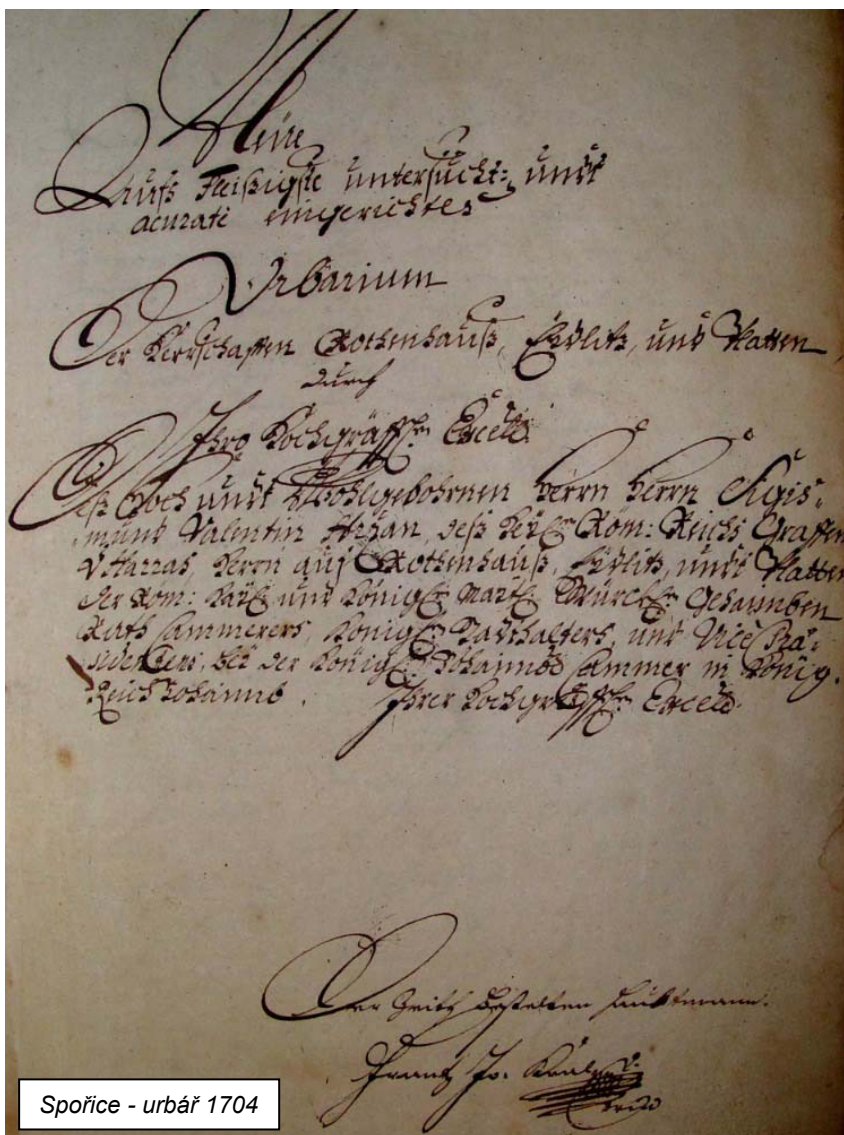 Neüe
Aufs Fleißigste untersucht: undt
acurate eingerichtes
Urbarium
Der Herrschafften Rothenhauß, Eydlitz, und Platten
durch
Ihro Hochgräffl. Excell.
Deß Hoch undt Wohlgebohrnen Herrn Herrn Sigis-
mund Valentin Hrzan, deß Heyl. Röm: Reichs Graffen
V. Harras, Herrn auf Rothenhauß, Eydlitz, undt Platten
der Röm: Kayl. und Königl. Mayt. Würckl. Gehaimben
Rath Cammerers, Königl. Statthalters, und Vice Præ-
sidentens, bei der Königl. Böhaimbs. Cammer in König-
Reich Böhaimb. Ihrer Hochgräffl. Excell.
Der Zeith bestelten Haubtmann.
Frantz Jo.
Spořice - urbář 1704